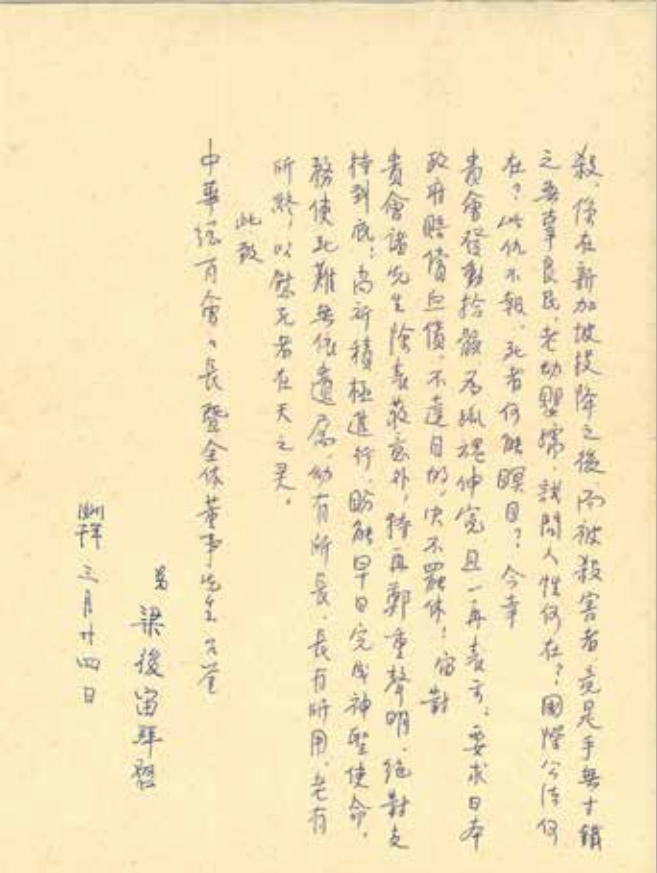 殺，係在新加坡投降之後，而被殺害者，竟是手無寸鐵
之無辜良民，老幼嬰孺，試問人性何在？國際公法何
在？此仇不報，死者何能瞑目？今幸
貴會發動拾骸為孤魂伸冤且一再表示，要求日本
政府賠償血債，不達目的，决不罷休！宙對
貴會諸先生除表敬意外，特再鄭重聲明，絕對支
持到底；尚祈積極進行，盼能早日完成神聖使命，
務使死難無依遺屬，幼有所長，長有所用，老有
所終，以慰死者在天之灵。
此致
中華總商會會長暨全体董事先生公鉴
弟 梁後宙拜啓
三月廿四日